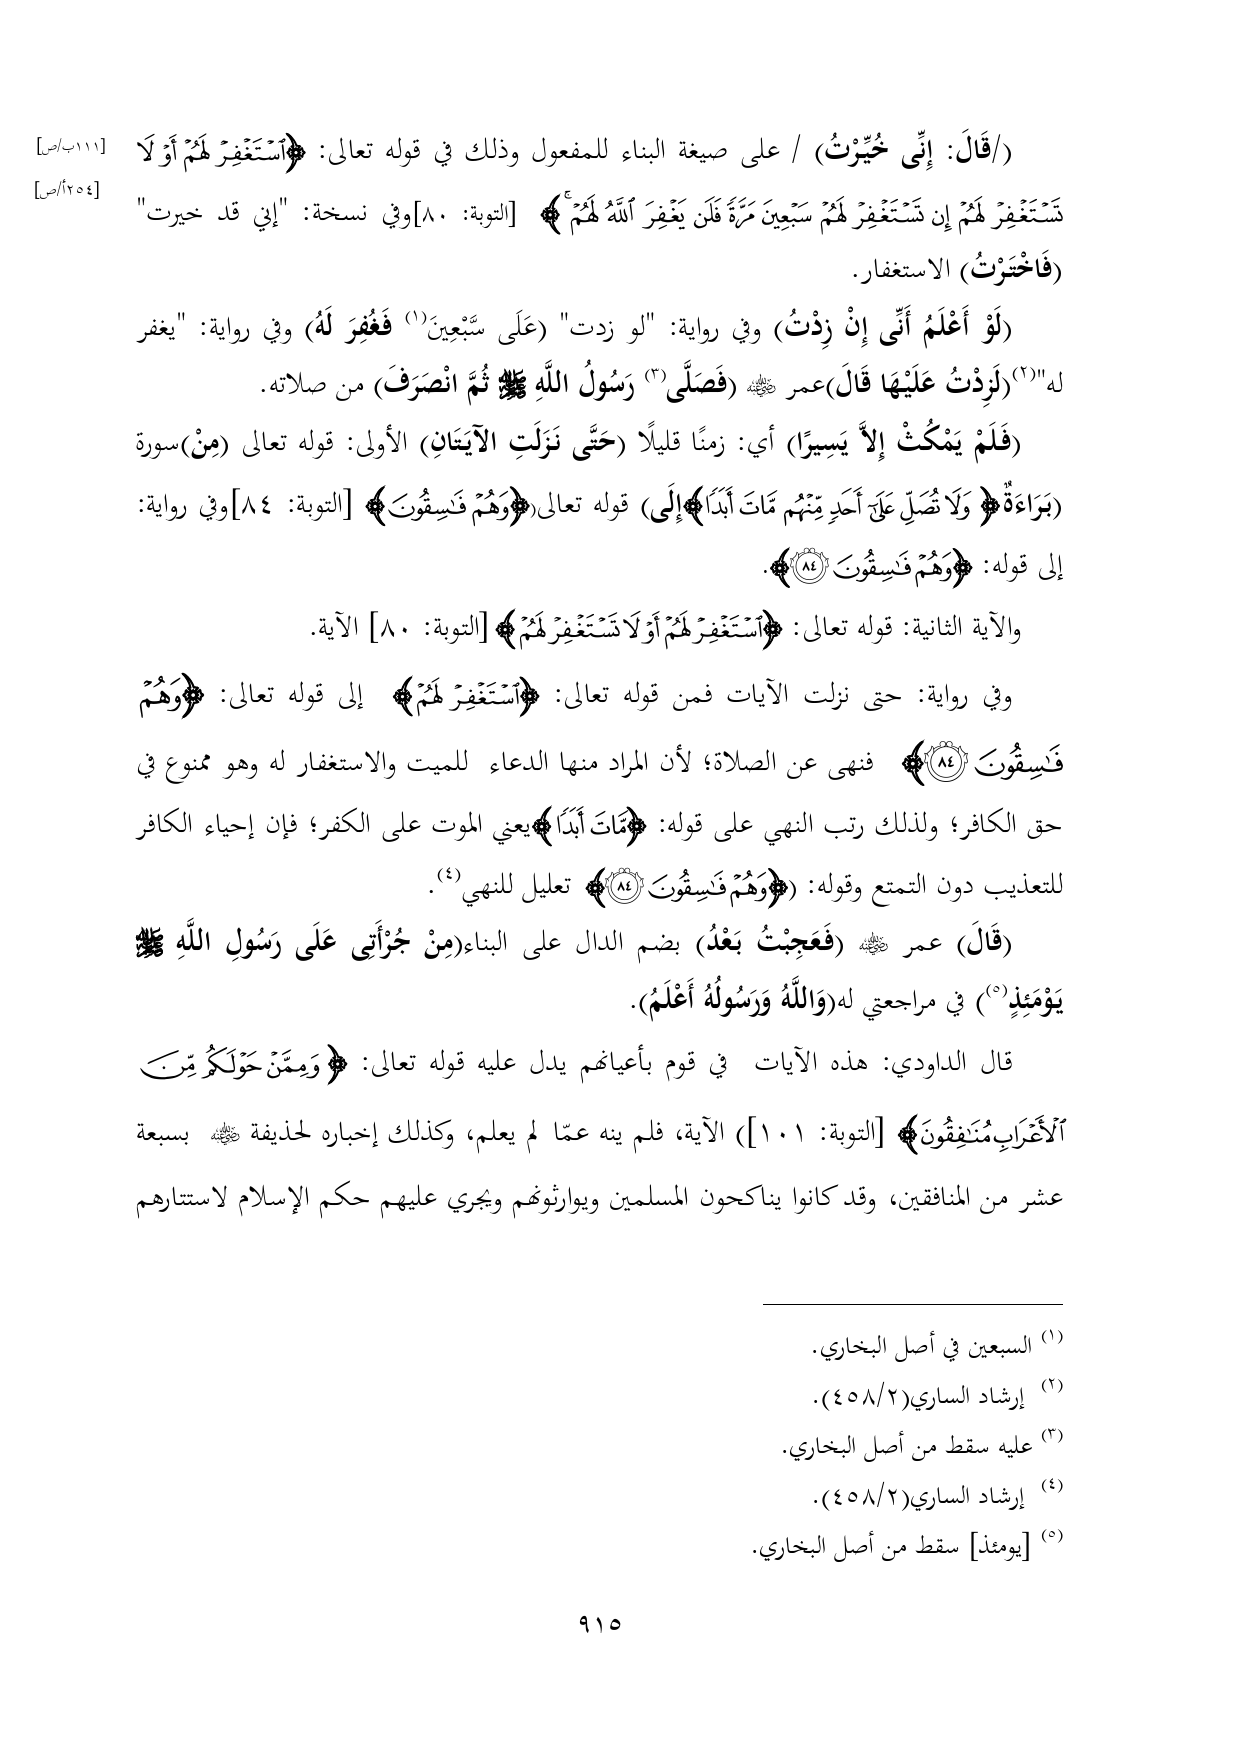 (/قَالَ: إِنِّى خُيِّرْتُ) / على صيغة البناء للمفعول وذلك في قوله تعالى: ﴿ٱسۡتَغۡفِرۡ لَهُمۡ أَوۡ لَا
[١١١ب/ص]
تَسۡتَغۡفِرۡ لَهُمۡ إِن تَسۡتَغۡفِرۡ لَهُمۡ سَبۡعِينَ مَرَّةٗ فَلَن يَغۡفِرَ ٱللَّهُ لَهُمۡۚ﴾ [التوبة: ٨٠]وفي نسخة: "إني قد خيرت"
[٢٥٤أ/ص]
(فَاخْتَرْتُ) الاستغفار.
(لَوْ أَعْلَمُ أَنِّى إِنْ زِدْتُ) وفي رواية: "لو زدت" (عَلَى سَّبْعِينَ(١) فَغُفِرَ لَهُ) وفي رواية: "يغفر
له"(٢)(لَزِدْتُ عَلَيْهَا قَالَ)عمر ﵁ (فَصَلَّى(٣) رَسُولُ اللَّهِ ﷺ ثُمَّ انْصَرَفَ) من صلاته.
(فَلَمْ يَمْكُثْ إِلاَّ يَسِيرًا) أي: زمنًا قليلًا (حَتَّى نَزَلَتِ الآيَتَانِ) الأولى: قوله تعالى (مِنْ)سورة
(بَرَاءَةٌ﴿ وَلَا تُصَلِّ عَلَىٰٓ أَحَدٖ مِّنۡهُم مَّاتَ أَبَدٗا﴾إِلَى) قوله تعالى(﴿وَهُمۡ فَٰسِقُونَ﴾ [التوبة: ٨٤]وفي رواية:
إلى قوله: ﴿وَهُمۡ فَٰسِقُونَ ٨٤﴾.
والآية الثانية: قوله تعالى: ﴿ٱسۡتَغۡفِرۡ لَهُمۡ أَوۡ لَا تَسۡتَغۡفِرۡ لَهُمۡ﴾ [التوبة: ٨٠] الآية.
وفي رواية: حتى نزلت الآيات فمن قوله تعالى: ﴿ٱسۡتَغۡفِرۡ لَهُمۡ﴾ إلى قوله تعالى: ﴿وَهُمۡ
فَٰسِقُونَ ٨٤﴾ فنهى عن الصلاة؛ لأن المراد منها الدعاء للميت والاستغفار له وهو ممنوع في
حق الكافر؛ ولذلك رتب النهي على قوله: ﴿مَّاتَ أَبَدٗا﴾يعني الموت على الكفر؛ فإن إحياء الكافر
للتعذيب دون التمتع وقوله: (﴿وَهُمۡ فَٰسِقُونَ ٨٤﴾ تعليل للنهي(٤).
(قَالَ) عمر ﵁ (فَعَجِبْتُ بَعْدُ) بضم الدال على البناء(مِنْ جُرْأَتِى عَلَى رَسُولِ اللَّهِ ﷺ
يَوْمَئِذٍ(٥)) في مراجعتي له(وَاللَّهُ وَرَسُولُهُ أَعْلَمُ).
قال الداودي: هذه الآيات في قوم بأعيانهم يدل عليه قوله تعالى: ﴿ وَمِمَّنۡ حَوۡلَكُم مِّنَ
ٱلۡأَعۡرَابِ مُنَٰفِقُونَ﴾ [التوبة: ١٠١]) الآية، فلم ينه عمّا لم يعلم، وكذلك إخباره لحذيفة ﵁ بسبعة
عشر من المنافقين، وقد كانوا يناكحون المسلمين ويوارثونهم ويجري عليهم حكم الإسلام لاستتارهم
(١) السبعين في أصل البخاري.
(٢) إرشاد الساري(٤٥٨/٢).
(٣) عليه سقط من أصل البخاري.
(٤) إرشاد الساري(٤٥٨/٢).
(٥) [يومئذ] سقط من أصل البخاري.
٩١٥